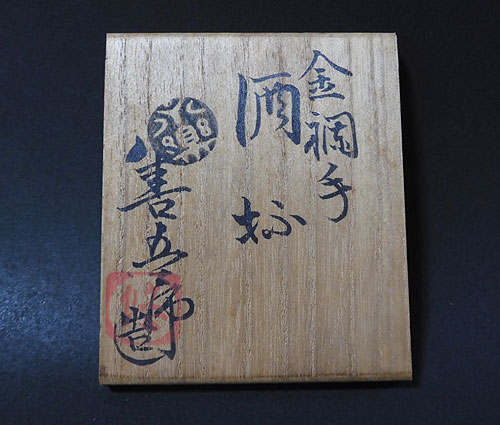 金襴手
酒杯
善五郎造